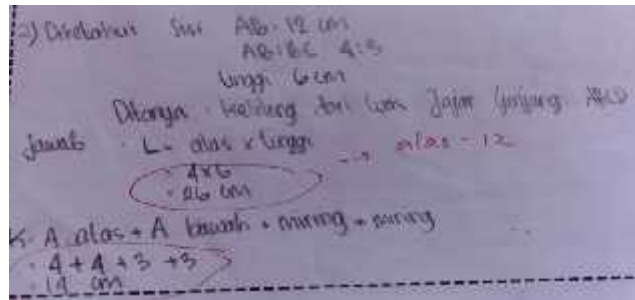 2) Diketahui Sisi AB = 12 cm
AB : BC 4:3
tinggi 6 cm
Ditanya : keliling dan luas Jajar Genjang ABCD
Jawab : L = alas x tinggi --> alas = 12
= 4x6
= 26 cm
K = A atas + A bawah + miring + miring
= 4 + 4 + 3 + 3
= 14 cm